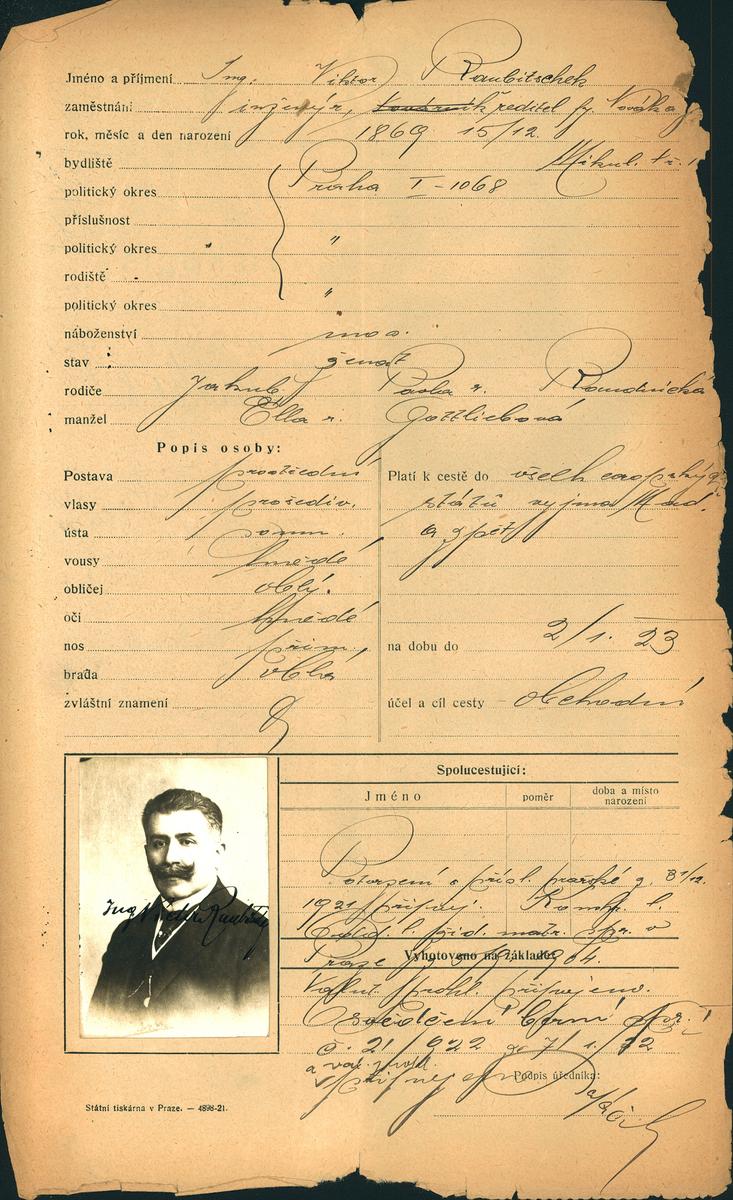 Jméno a příjmení Ing. Viktor Raubitschek
zaměstnání inženýr, ředitel fy. Novák
rok, měsíc a den narození 1869 15/12.
bydliště Mikul. tř. 1
politický okres Praha I-1068
příslušnost
politický okres "
rodiště
politický okres "
náboženství mos.
stav ženat
rodiče Jakub Pavla r. Roudnická
manžel Ella r. Gottliebová
Popis osoby:
Postava prostřední
vlasy prošediv.
ústa soum.
vousy hnědé
obličej oblý.
oči hnědé
nos přim.
brada oblá
zvláštní znamení
Platí k cestě do všech evropských
států vyjma Maď.
a zpět
na dobu do 2/1. 23
účel a cíl cesty obchodní
Spolucestující:
Jméno poměr doba a místo narození
Potvrzení o přísl. pražské z 31/12.
1921 připoj.
Praze
Vyhotoveno na základě:
připojeno.
Osvědčení berní
č. 21/922 ze 7/1. 22
Podpis úředníka:
Ing Viktor Raubitschek
Státní tiskárna v Praze. — 4898-21.